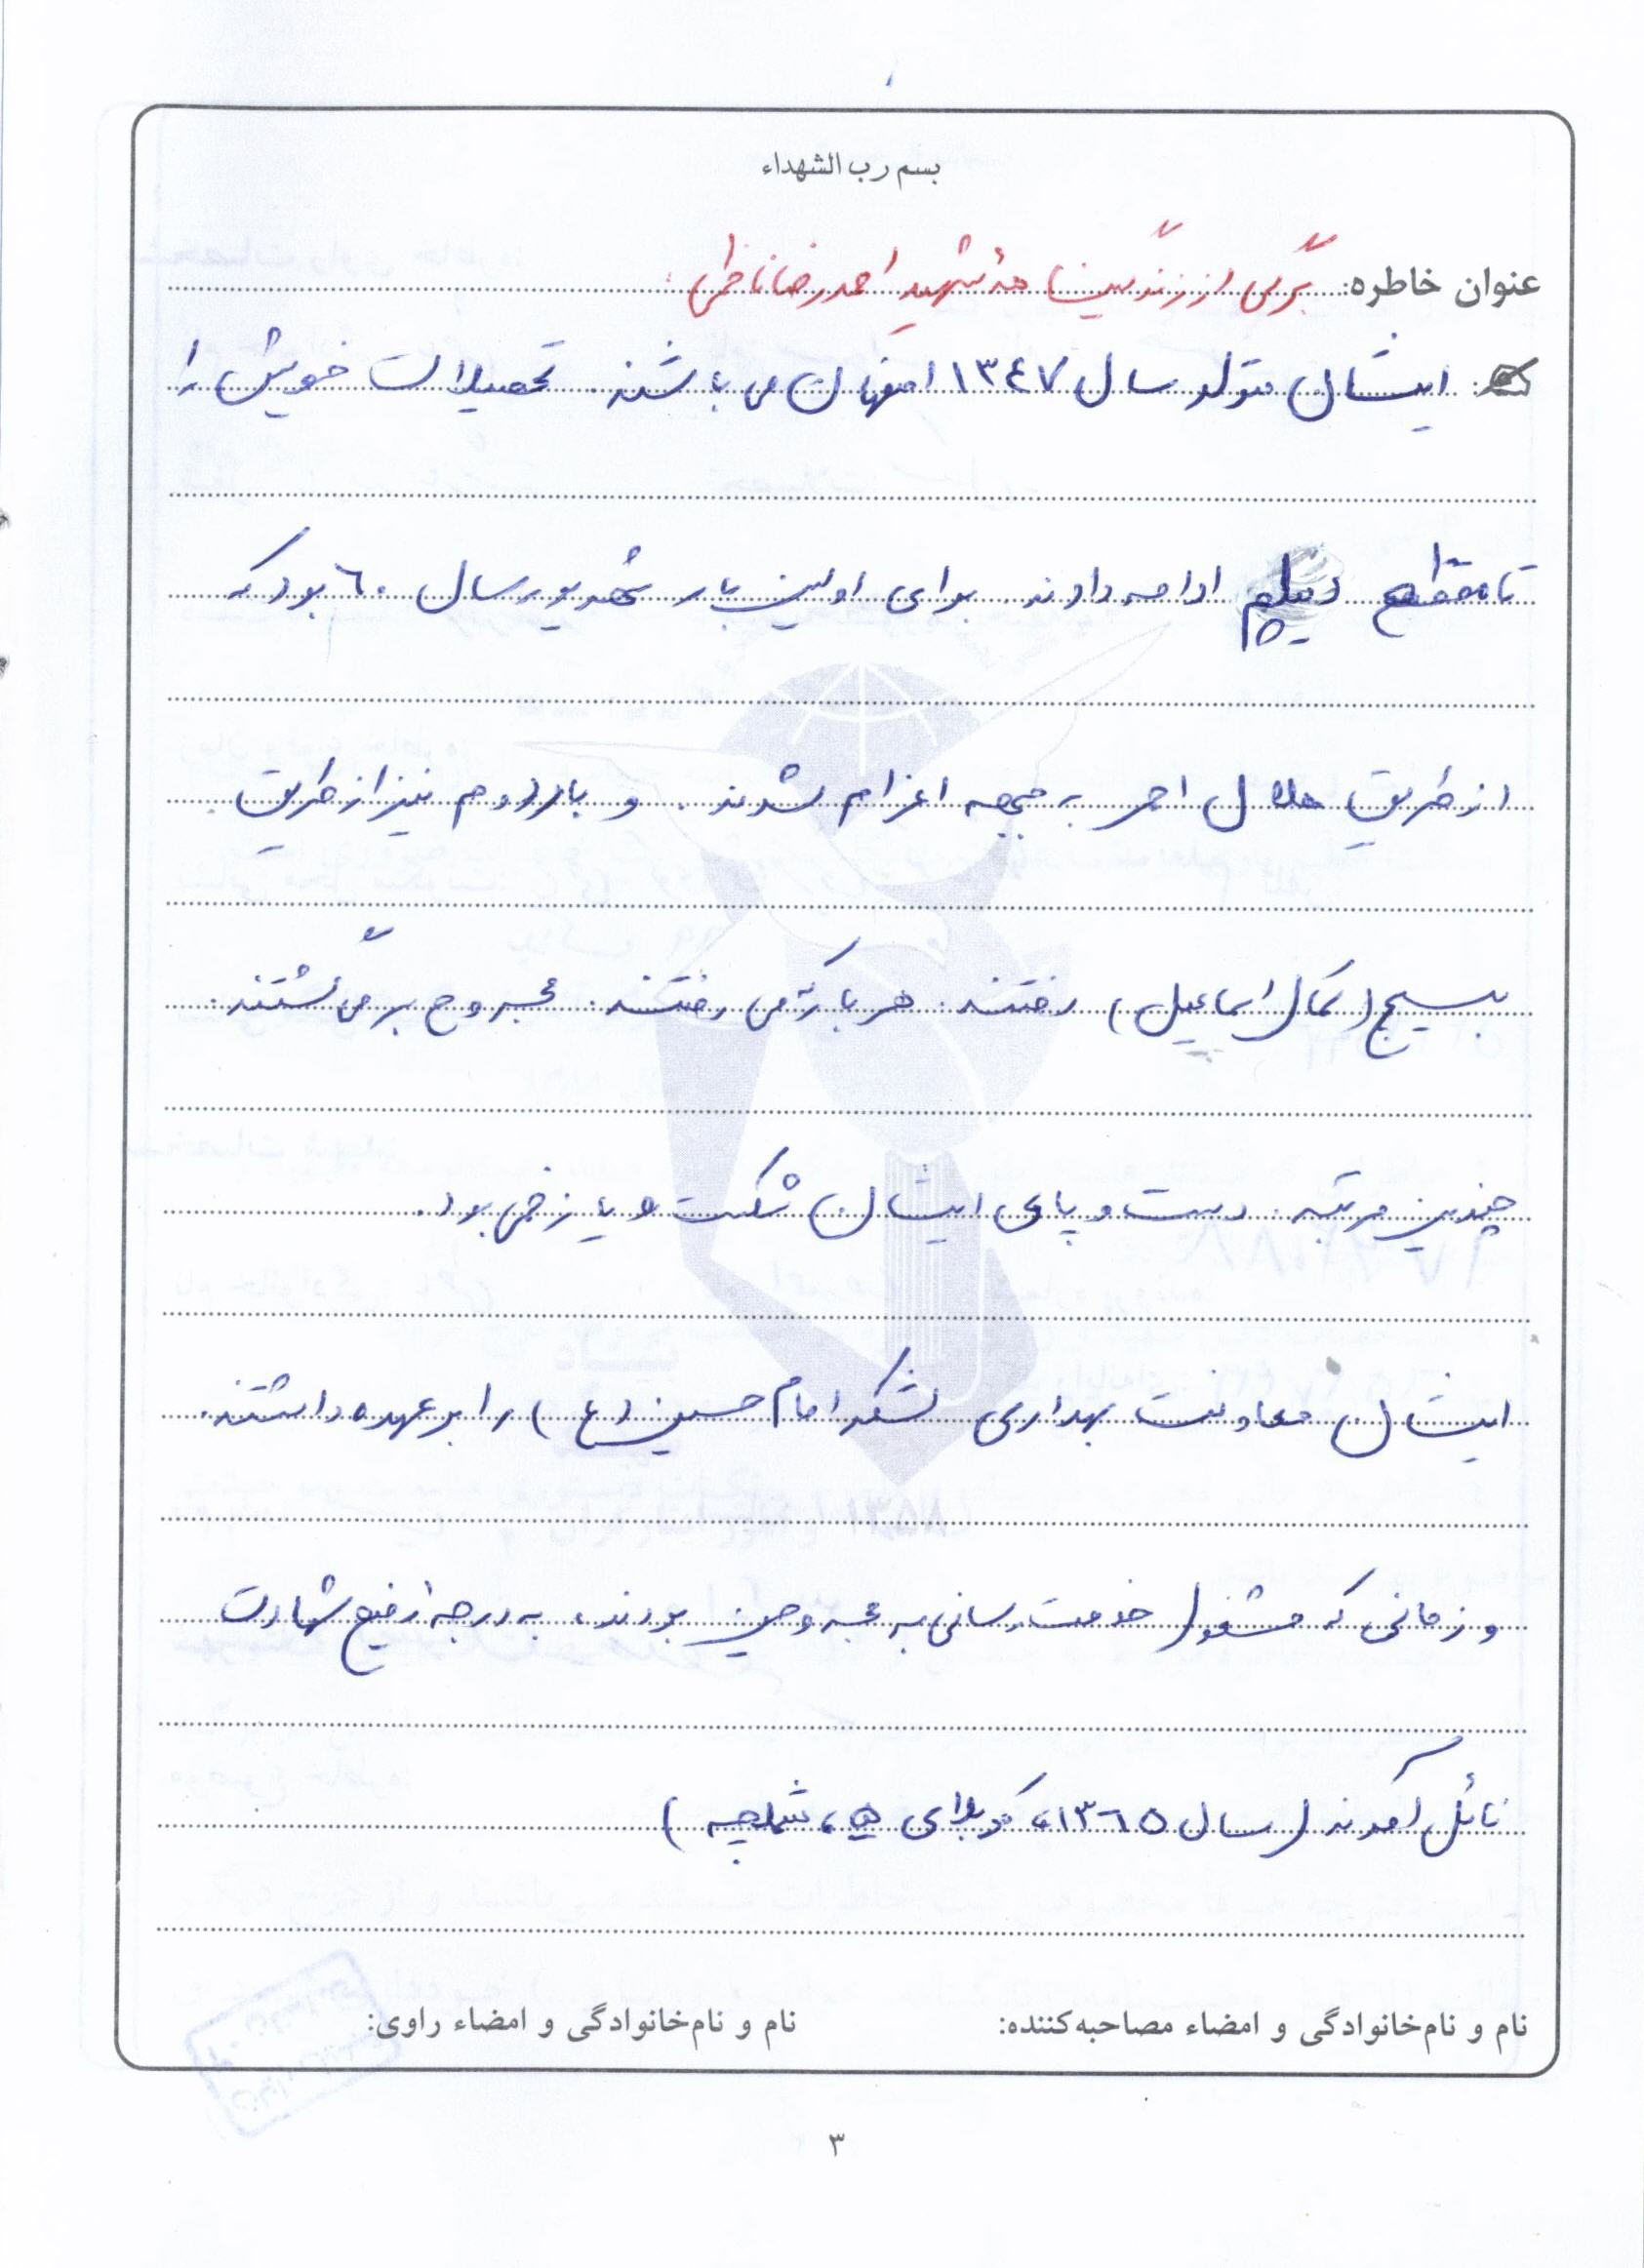 بسم رب الشهداء
عنوان خاطره: برگی از زندگینامهٔ شهید احمدرضا ناظمی:
ایشان متولد سال ۱۳۴۷ اصفهان می باشند. تحصیلات خویش را
تا مقطع دیپلم ادامه دادند. برای اولین بار شهریور سال ۶۰ بود که
از طریق هلال احمر به جبهه اعزام شدند. و بار دوم نیز از طریق
بسیج (کمال اسماعیل) رفتند. هر بار که می رفتند. مجروح برمی گشتند.
چندین مرتبه. دست و پای ایشان شکست و یا زخمی بود.
ایشان معاونت بهداری لشکر امام حسین (ع) را بر عهده داشتند.
و زمانی که مشغول خدمت رسانی به مجروحین بودند، به درجه أرفیع شهادت
نائل آمدند (سال ۱۳۶۵، کربلای ۵، شلمچه)
نام و نام‌خانوادگی و امضاء مصاحبه‌کننده: نام و نام‌خانوادگی و امضاء راوی:
۳